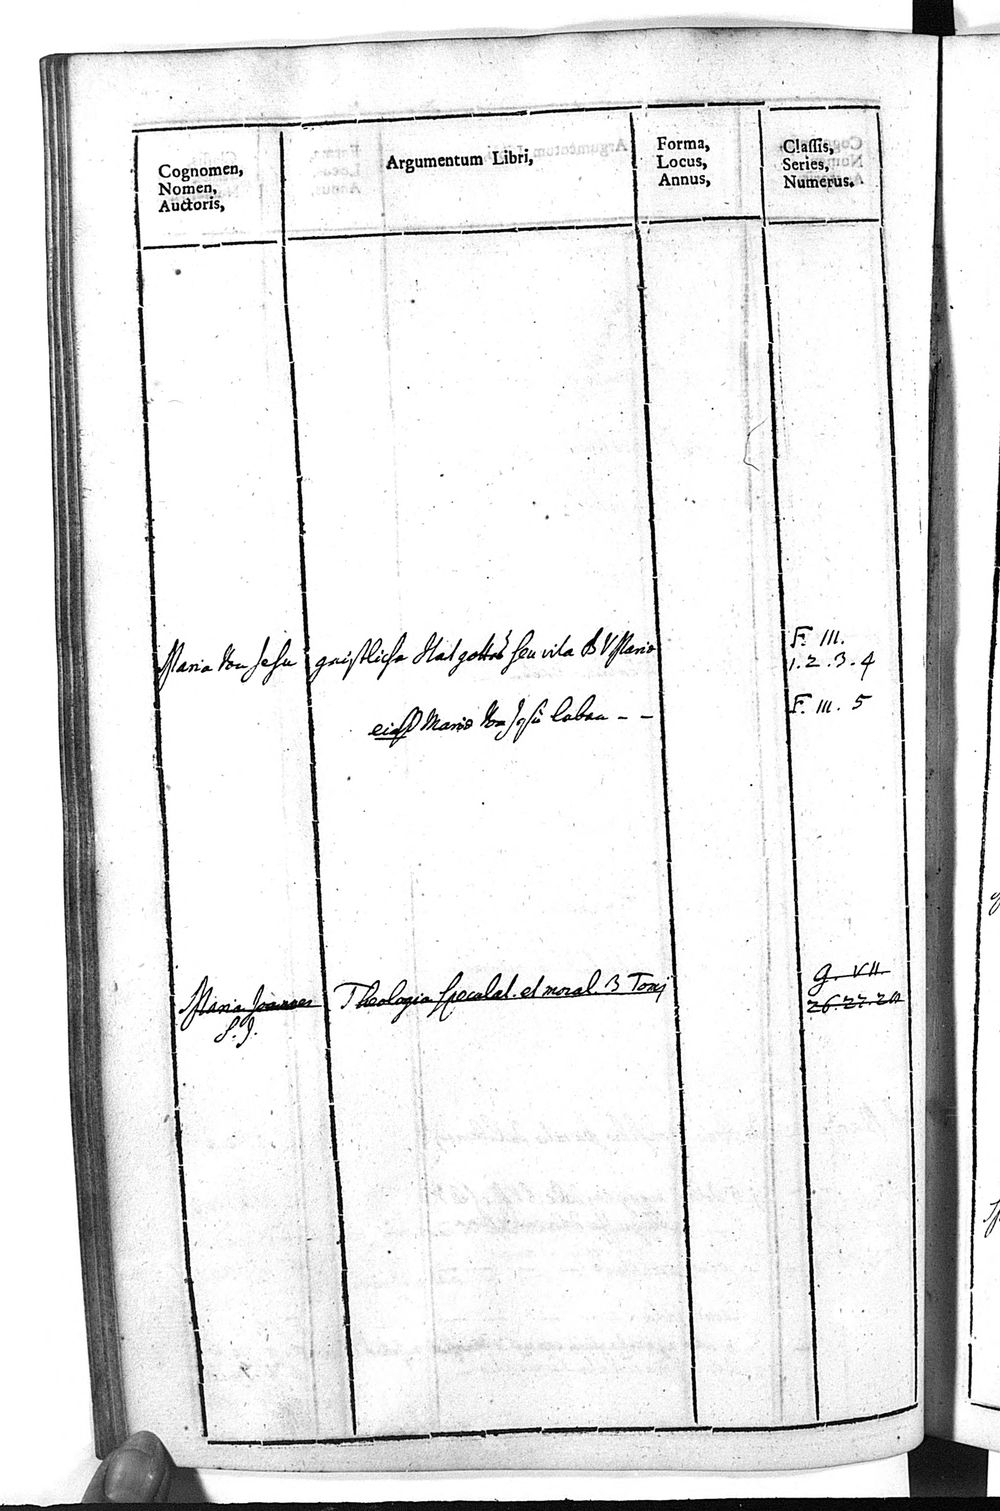 Cognomen,
Nomen,
Auctoris,
Argumentum Libri,
Forma,
Locus,
Annus,
Classis,
Series,
Numerus.
Maria von Jesu geistliche Statt gottes seu vita B V Mariae
F. III.
1. 2. 3. 4
Mariae von Jesu leben - -
F. III. 5
Maria Joannes
S. J.
Theologia speculat. et moral. 3 Tomi
g. VII.
26. 27. 28